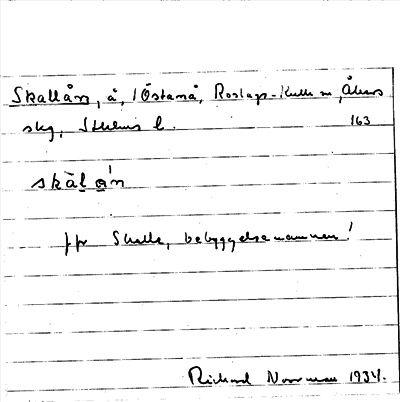 Skallån, å, i Östanå, Roslags-Kulla sn, Åkers
skg, Sthlms l. 163
skàl ån
jfr Skalla, bebyggelsenamnen!
Richard Norrman 1934.